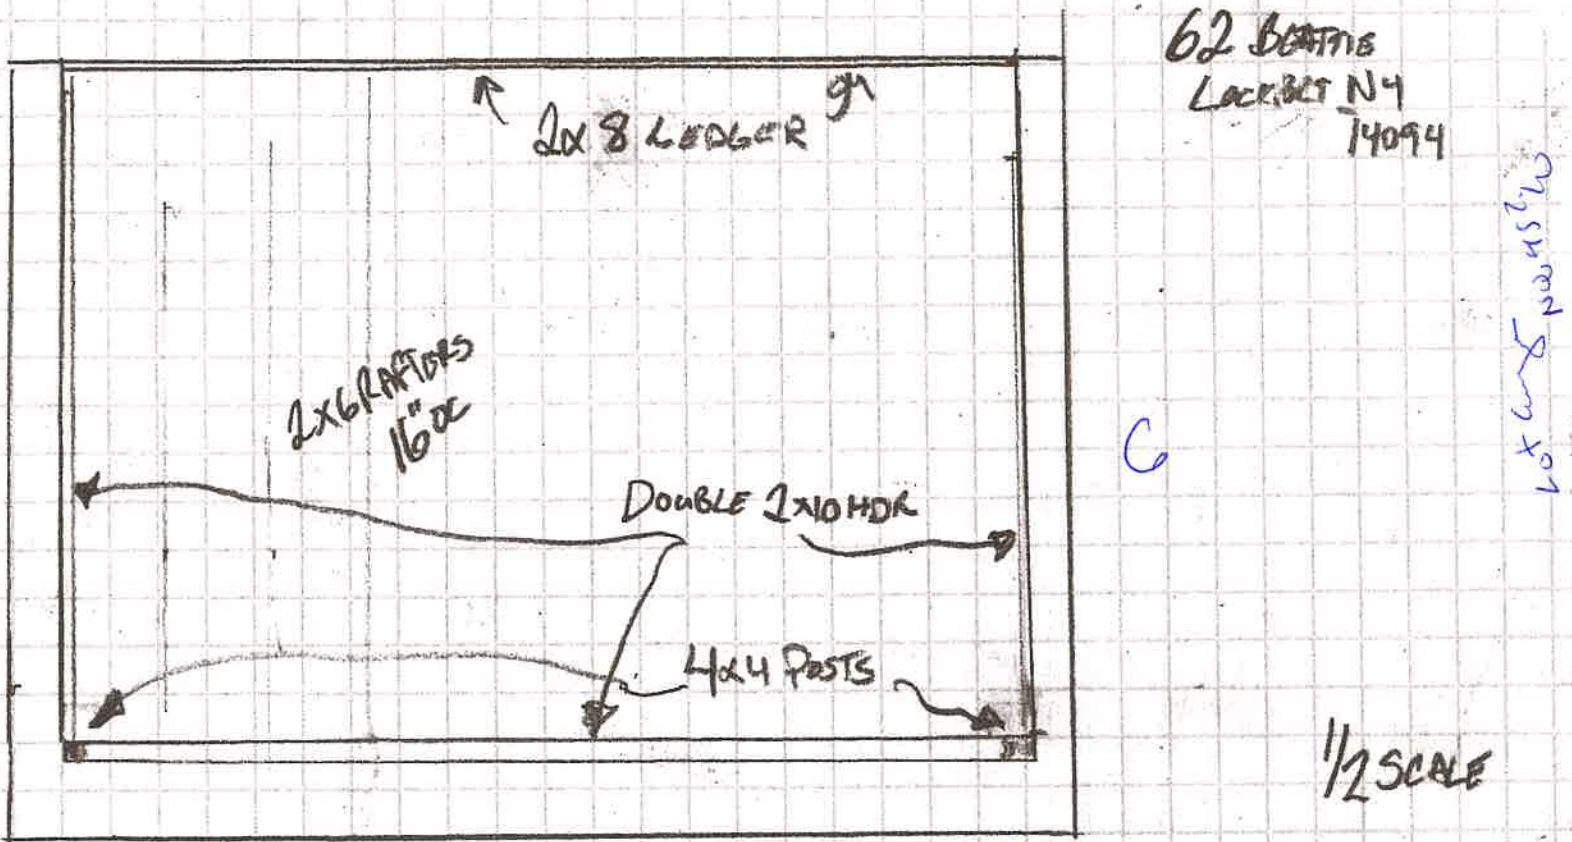 62 BEATTIE
LOCKPORT NY
14094
2x8 LEDGER
2x6 RAFTORS
16" OC
DOUBLE 2x10 HDR
4x4 POSTS
6
1/2 SCALE